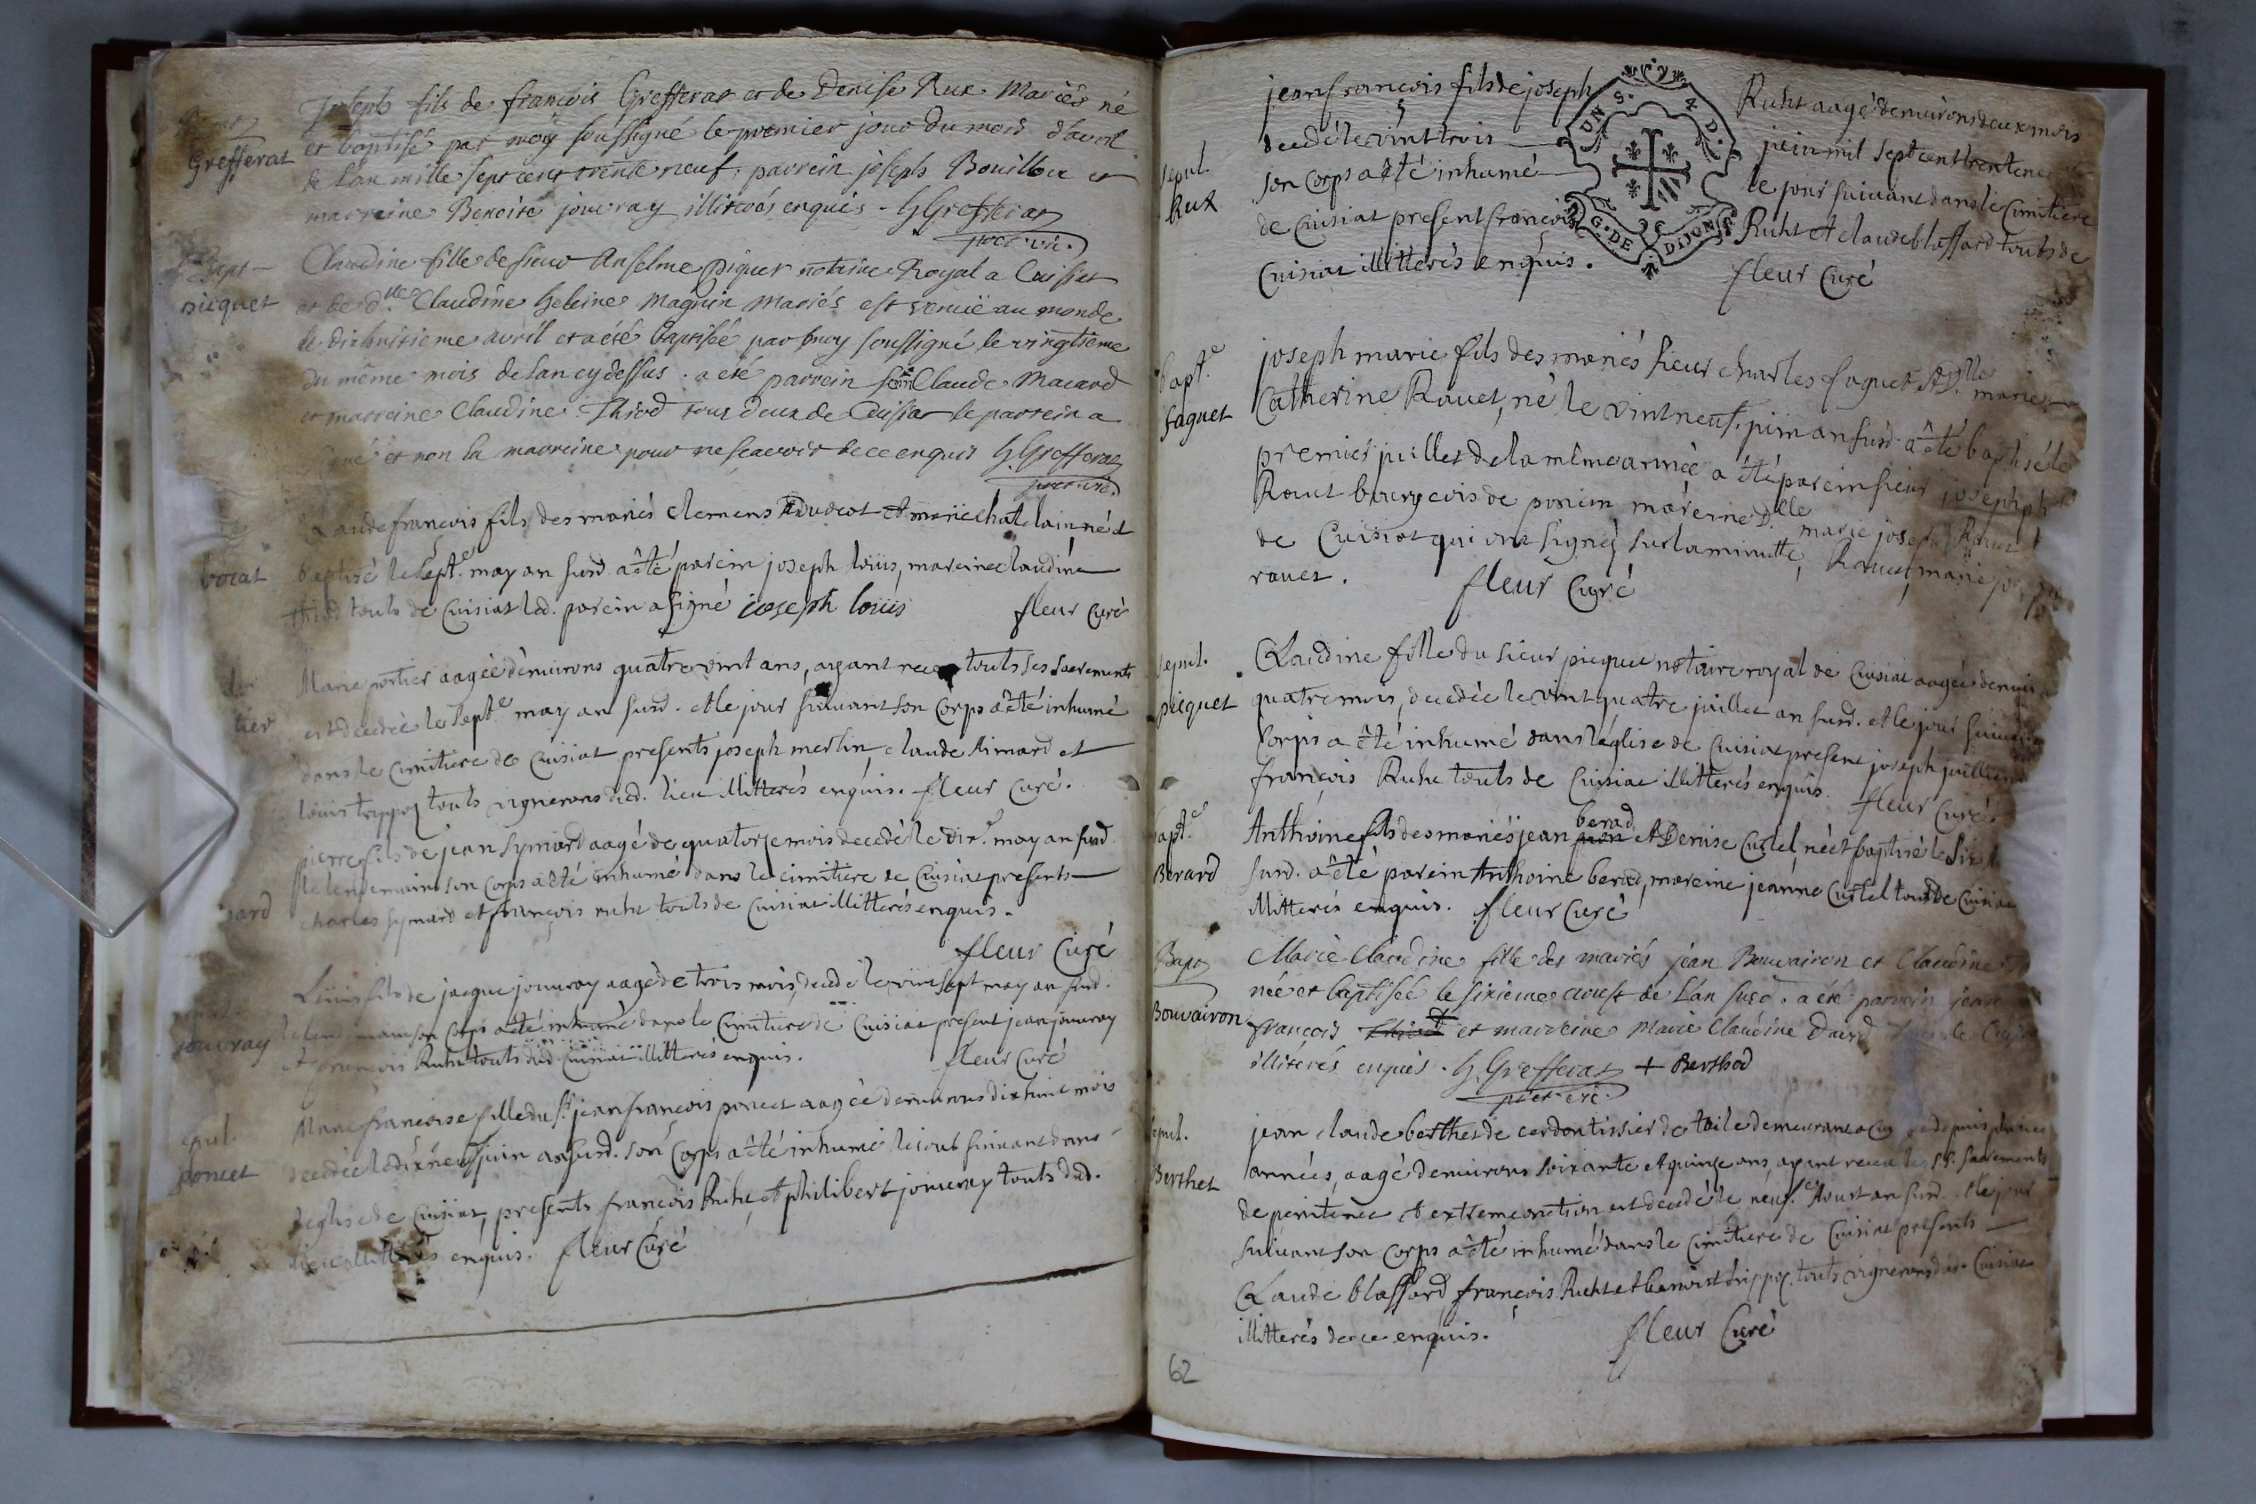 Bapt
Grefferat
Joseph fils de francois Grefferat et de Denise Rux Mariés né
et baptisé par moy soussigné le premier jour du mois d'avril
de L'an mille sept cent trente neuf, parrein joseph Bouilloux et
marreine Benoite jouvray illiterés enquis. G Grefferat
pret. vic.
Bapt
picquet
Claudine fille de sieur Anselme piquet notaire Royal a Cuisiat
et de d.lle Claudine heleine Magnin Mariés est venuë au monde
le dixhuitieme avril et a été baptisée par moy soussigné le vingtieme
du même mois de l'an cy dessus. a eté parrein Claude Macard
et marreine Claudine Thiod tous deux de Cuisiat le parrein a
signé et non la marreine pour ne scavoir de ce enquis G. Grefferat
pret. vic.
Claude francois fils des mariés Clemens et marie chatelain né et
baptisé le sept.e may an susd. a êté parein joseph loüis, mareine claudine
thiod touts de Cuisiat led. parein a signé joseph loüis fleur Curé
tier
Marie portier aagée dênvirons quatre vint ans, ayant receu touts ses sacrements
est decedée le sept.e may an susd. et le jour suivant son Corps a êté inhumé
dans le cimitiere de Cuisiat presents joseph merlin, claude Aimard et
loüis trippoz touts vignerons dud. lieu illitterés enquis. fleur Curé.
pierre fils de jean Symard aagé de quatorze mois decedé le dix.e may an susd.
et le lendemain son corps a êté inhumé dans le cimitiere de Cuisiat presents
charles Symard et françois ruht touts de Cuisiat illitterés enquis.
fleur Curé
jouvray
Loüis fils de jacque jouvray aagé de trois mois, decedé le vint sept may an susd.
le lendemain son corps a êté inhumé dans le Cimitiere de Cuisiat present jean jouvray
et françois Ruht touts dud. Cuisiat illitterés enquis. fleur Curé
sepul.
poncet
Marie francoise fille du S.r jean francois poncet aagée d'environs dixhuit mois
decedée le dixneuf juin an susd. son Corps a êté inhumé le jour suivant dans
l'eglise de Cuisiat, presents françois Ruht, et philibert jouvray touts dud.
lieu illitterés enquis. fleur Curé
sepul.
Rux
jean françois fils de joseph Ruht aagé d'environs deux mois
decedé le vint trois juin mil sept cent trente neuf
son corps a êté inhumé le jour suivant dans le cimitiere
de Cuisiat present françois Ruht et claude blassard touts de
Cuisiat illitterés enquis. fleur Curé
DUN S. 4 D. G. DE DIJON
bapt.e
faguet
joseph marie fils des mariés sieur charles faguet et D.lle marie
Catherine Ravet, né le vint neuf. juin an susd. a êté baptisé le
premier juillet de la même année a êté parein sieur joseph
Ravet bourgeois de poncin mareine D.lle marie joseph Ravet
de Cuisiat qui ont signé sur la minutte, Ravet, marie jos
ravet. fleur Curé
sepul.
picquet
Claudine fille du sieur picquet notaire royal de Cuisiat aagée denviron
quatre mois, decedée le vint quatre juillet an susd. et le jour suivant
Corps a êté inhumé dans l'église de Cuisiat present joseph juillien
françois Ruht touts de Cuisiat illitterés enquis. fleur Curé.
bapt.e
Berard
Anthoine fils des mariés jean berad et Denise Curtel, né et baptisé le six
susd. a êté parein Anthoine berad, mareine jeanne Curtel touts de Cuisiat
illitterés enquis. fleur Curé
Bapt
Bouvairon
Marie Claudine fille des mariés jean Bouvairon et Claudine
née et baptisée le sixieme aoust de L'an susd. a été parrein jean
françois et marreine Marie Claudine Daud Cuisiat
illiterés enquis. G. Grefferat + Berthod
pret. vic.
sepul.
Berthet
jean claude berthet de cerdon tissier de toile demeurant a Cuisiat depuis plusieurs
années, aagé denvirons soixante et quinze ans, ayant receu les SS. sacrements
de penitence et extreme onction est decedé le neuf.e Aoust an susd. et le jour
suivant son Corps a êté inhumé dans le cimitiere de Cuisiat presents
Claude blassard, françois Ruht et benoist trippoz touts vignerons dud. Cuisiat
illitterés de ce enquis. fleur Curé
62